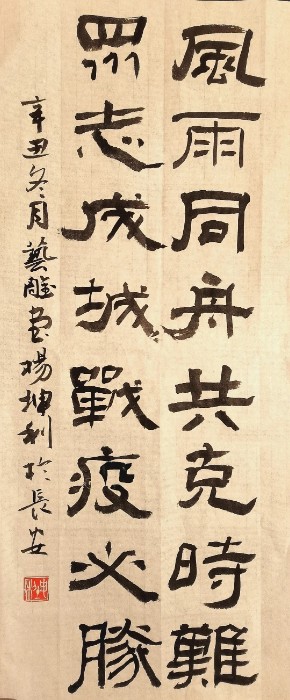 風雨同舟共克時難
眾志成城戰疫必勝
辛丑冬月藝雕堂楊坤利於長安